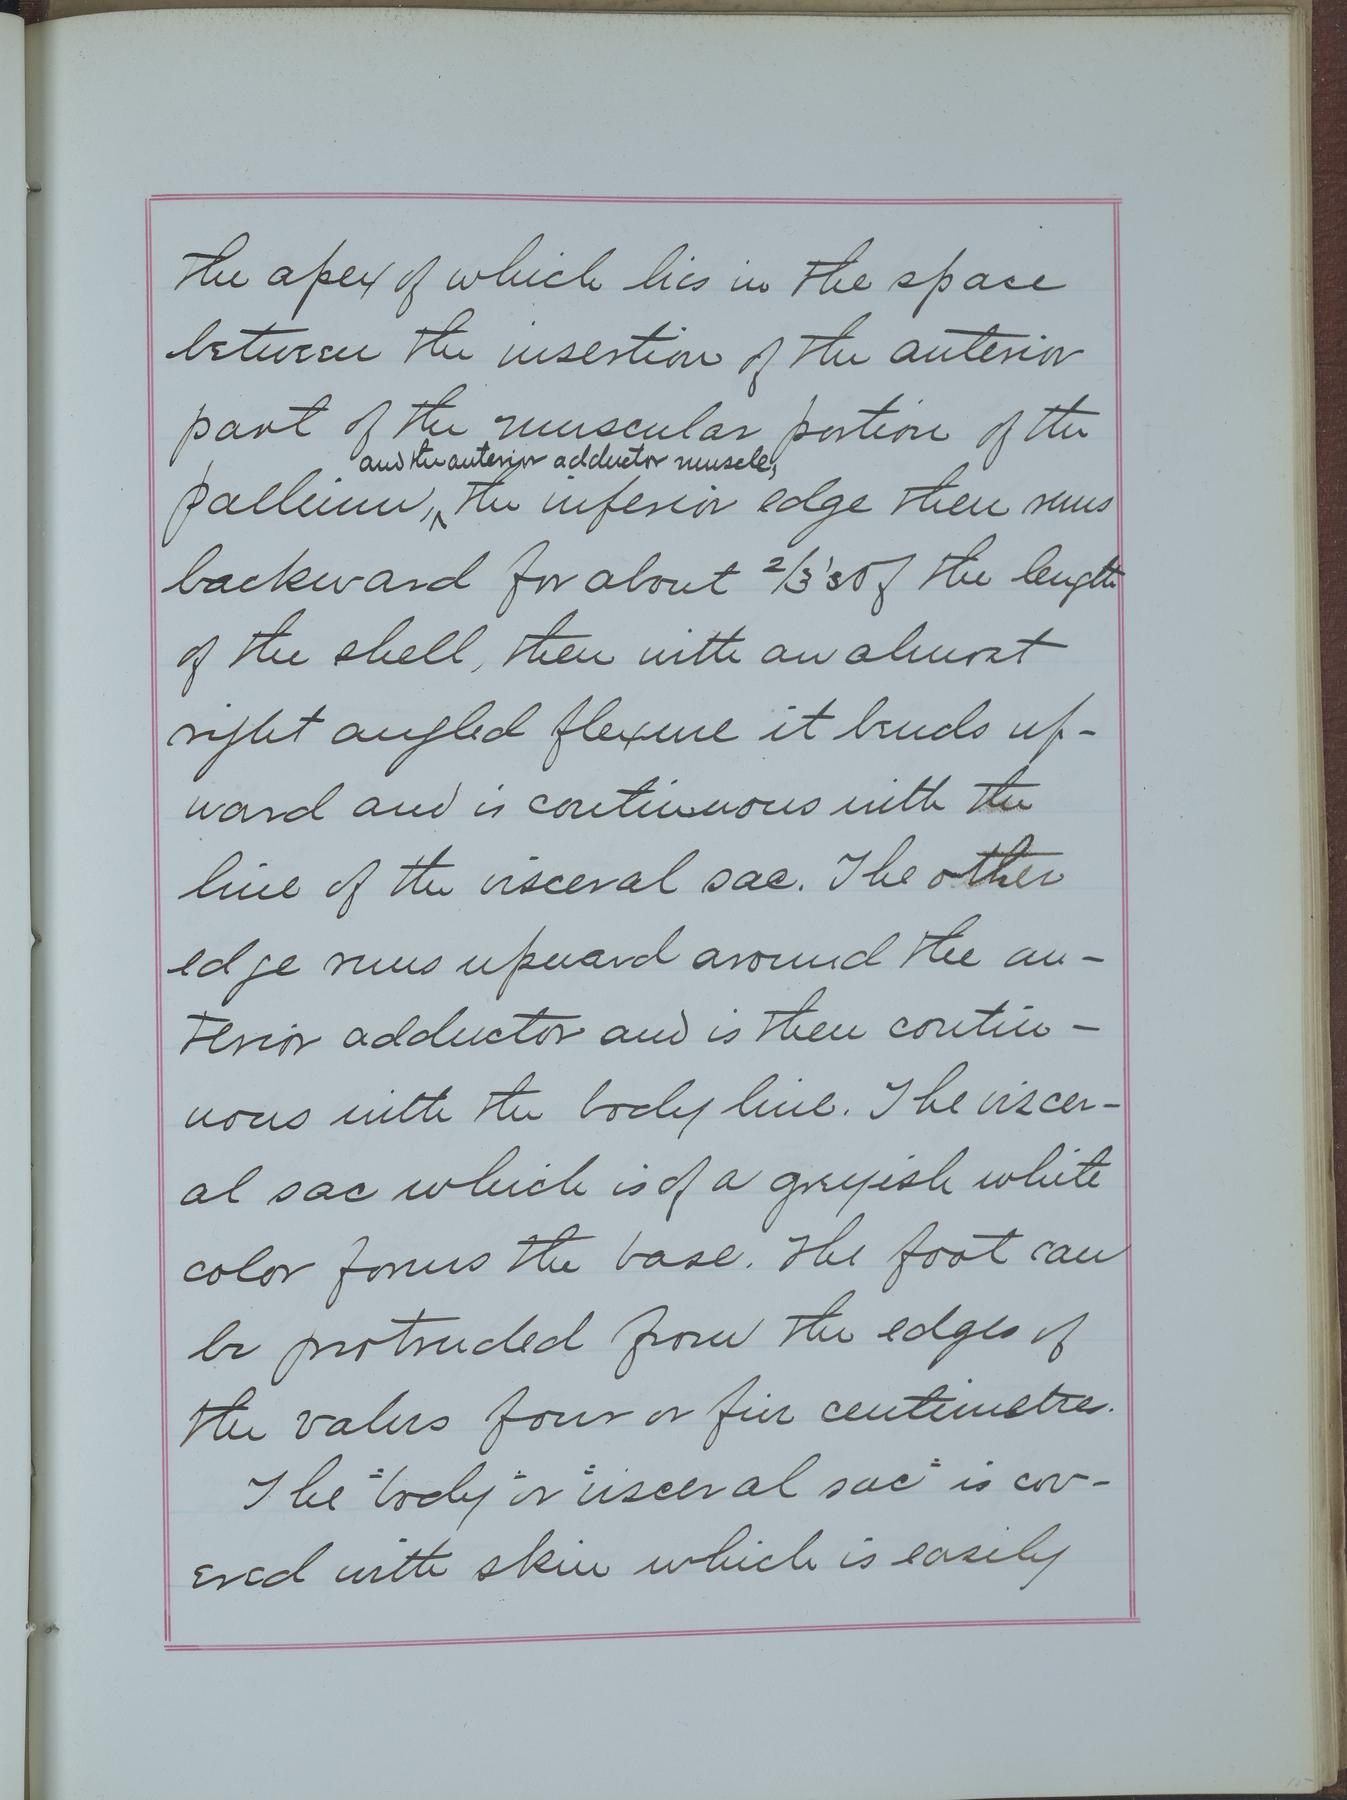 the apex of which lies in the space
between the insertion of the anterior
part of the muscular portion of the
and the anterior adductor muscle,
pallium, ‸ the inferior edge then runs
backward for about 2/3's of the length
of the shell, then with an almost
right angled flexure it bends up-
ward and is continuous with the
line of the visceral sac. The other
edge runs upward around the an-
terior adductor and is then contin-
uous with the body line. The viscer-
al sac which is of a greyish white
color forms the base. The foot can
be protruded from the edges of
the valves four or five centimetres.
The "body" or "visceral sac" is cov-
ered with skin which is easily